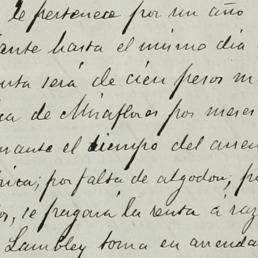 le pertenece por un año
ante hasta el mismo dia
nta será de cien pesos m
ca de Miraflores por meses
mante el tiempo del arren
rica; por falta de algodon, fu
or, se pagará la renta á raz
Lambley toma en arrenda